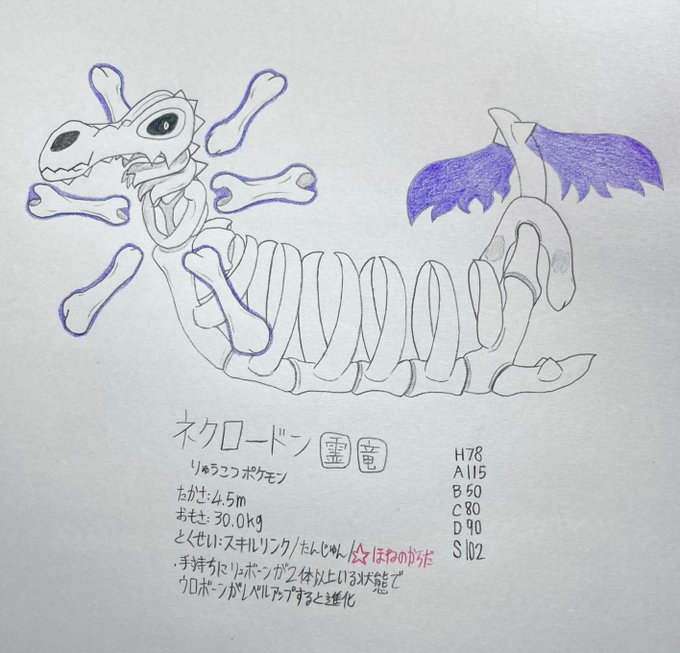 ネクロードン 霊 竜
りゅうこつポケモン
たかさ:4.5m
おもさ:30.0kg
とくせい:スキルリンク/たんじゅん/☆ほねのからだ
・手持ちにリュボーンが2体以上いる状態で
ウロボーンがレベルアップすると進化
H78
A115
B50
C80
D90
S102